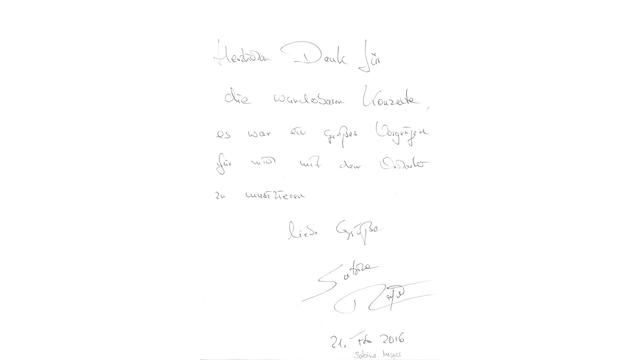 Herzlichen Dank für
die wunderbaren Konzerte,
es war ein großes Vergnügen
für mich mit dem Orchester
zu musizieren
liebe Grüße
Sabine
Meyer
21. Feb 2016
Sabine Meyer